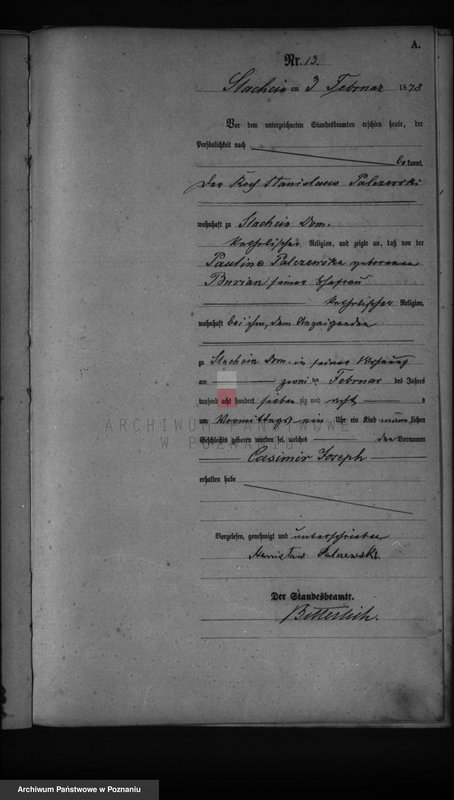 A.
Nr. 13.
am 3 Februar 1878
Vor dem unterzeichneten Standesbeamten erschien heute, der
Persönlichkeit nach
bekannt,
Der Koch Stanislaus Palczewski
wohnhaft zu Dom.
katholischer Religion, und zeigte an, daß von der
Pauline Palczewska geborenen
Burian seiner Ehefrau
katholischer Religion,
wohnhaft bei ihm, dem Anzeigenden
zu Dom. in seiner Wohnung
am zwei ten Februar des Jahres
tausend acht hundert sieben zig und acht
um Vormittags ein Uhr ein Kind männlichen
ARCHIWUM PAŃSTWOWE
W POZNANIU
Geschlechts geboren worden sei, welches den Vornamen
Casimir Joseph
erhalten habe
Vorgelesen, genehmigt und unterschrieben
Palczewski
Der Standesbeamte.
Bitterlich.
Archiwum Państwowe w Poznaniu